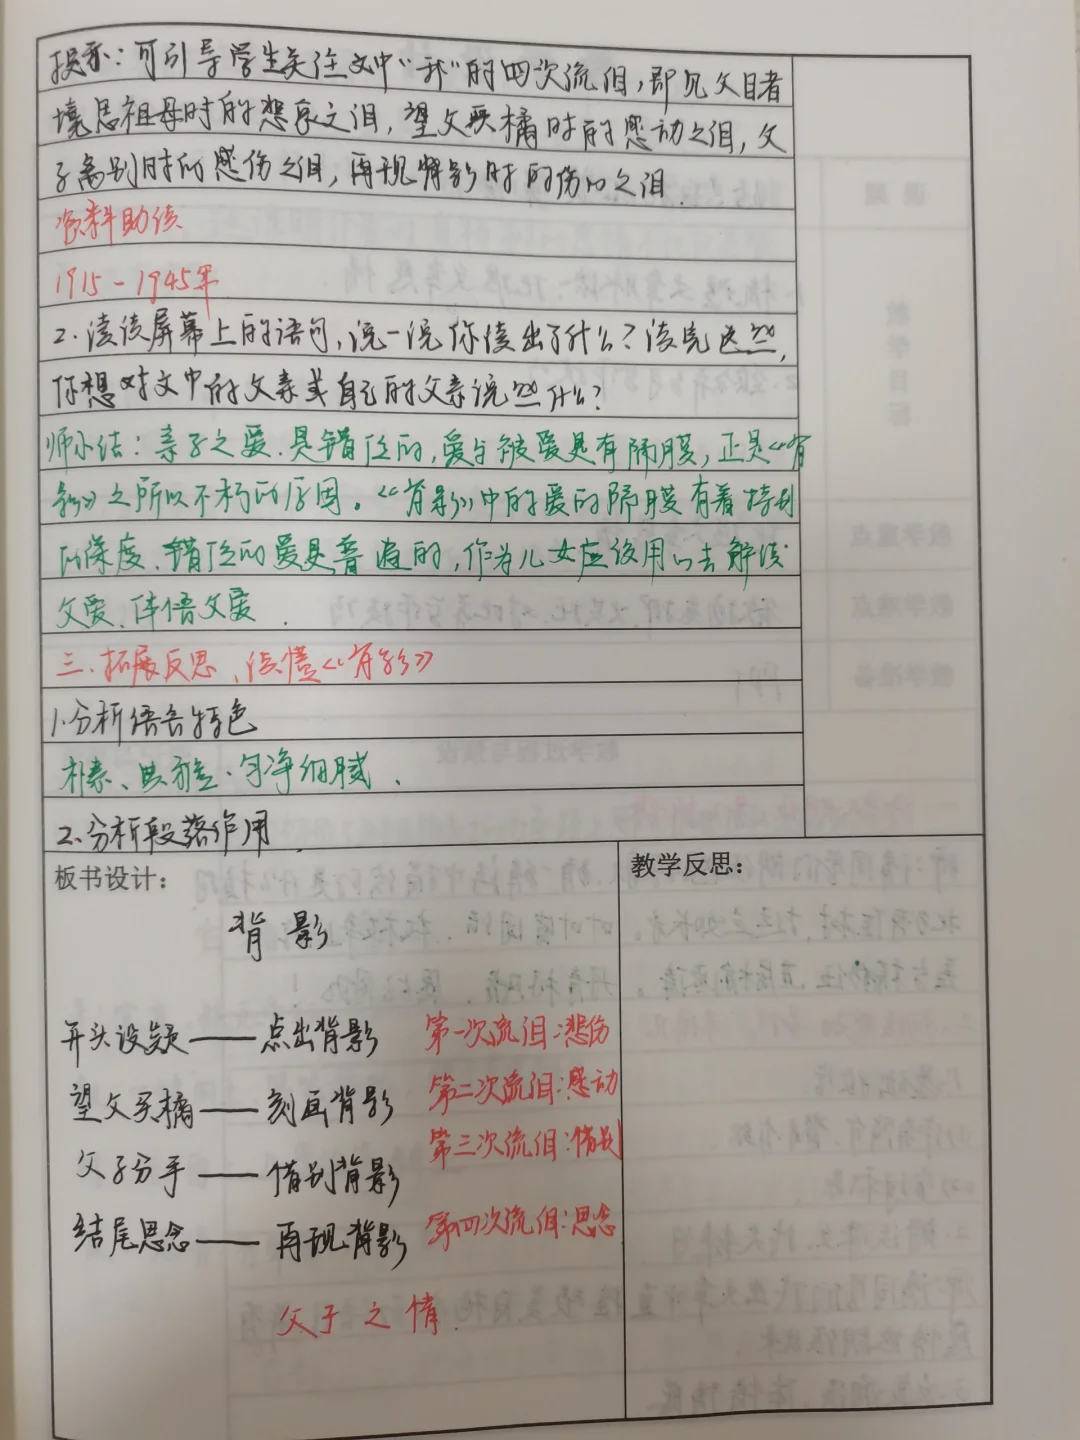 提示：可引导学生关注文中“我”的四次流泪，即见父目睹
境思祖母时的悲哀之泪，望父买橘时的感动之泪，父
子离别时的感伤之泪，再现背影时的伤心之泪.
资料助读
1915-1945年
2.读读屏幕上的语句，说一说你读出了什么？读完这些，
你想对文中的父亲或自己的父亲说些什么？
师小结：亲子之爱.是错位的，爱与被爱是有隔膜，正是《背
影》之所以不朽的原因。《背影》中的爱的隔膜有着特别
的深度.错位的爱是普遍的，作为儿女应该用心去解读
父爱、体悟父爱.
三.拓展反思，读懂《背影》
1.分析语言特色
朴素、典雅·匀净细腻.
2.分析段落作用.
板书设计：
背影
开头设疑——点出背影 第一次流泪：悲伤
望父买橘——刻画背影 第二次流泪：感动
父子分手——惜别背影 第三次流泪：惜别
结尾思念——再现背影 第四次流泪：思念
父子之情.
教学反思：